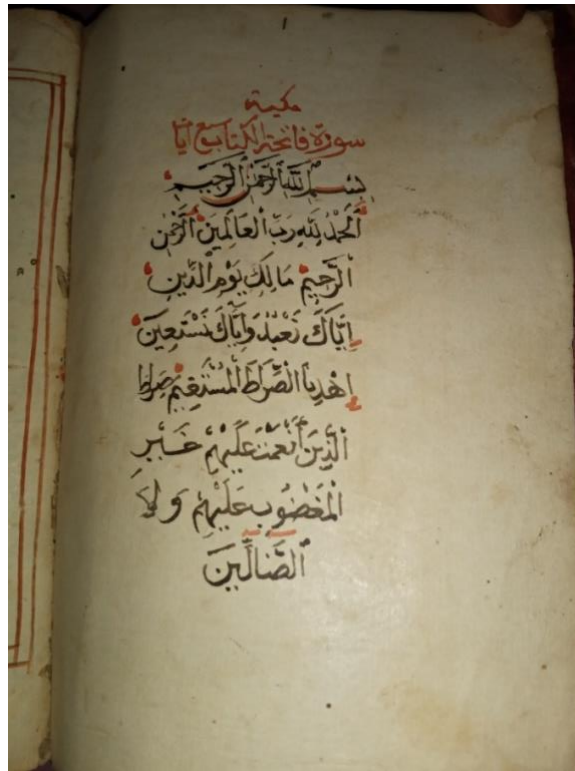 مكية
سورة فاتحة الكتاب سبع آيا
بِسْمِ ٱللَّهِ ٱلرَّحْمَٰنِ ٱلرَّحِيمِ
ٱلْحَمْدُ لِلَّهِ رَبِّ ٱلْعَالَمِينَ ٱلرَّحْمَٰنِ
ٱلرَّحِيمِ مَالِكِ يَوْمِ ٱلدِّينِ
إِيَّاكَ نَعْبُدُ وَإِيَّاكَ نَسْتَعِينُ
إِهْدِنَا ٱلصِّرَاطَ ٱلْمُسْتَقِيمَ صِرَاطَ
ٱلَّذِينَ أَنْعَمْتَ عَلَيْهِمْ غَيْرِ
ٱلْمَغْضُوبِ عَلَيْهِمْ وَلَا
ٱلضَّالِّينَ